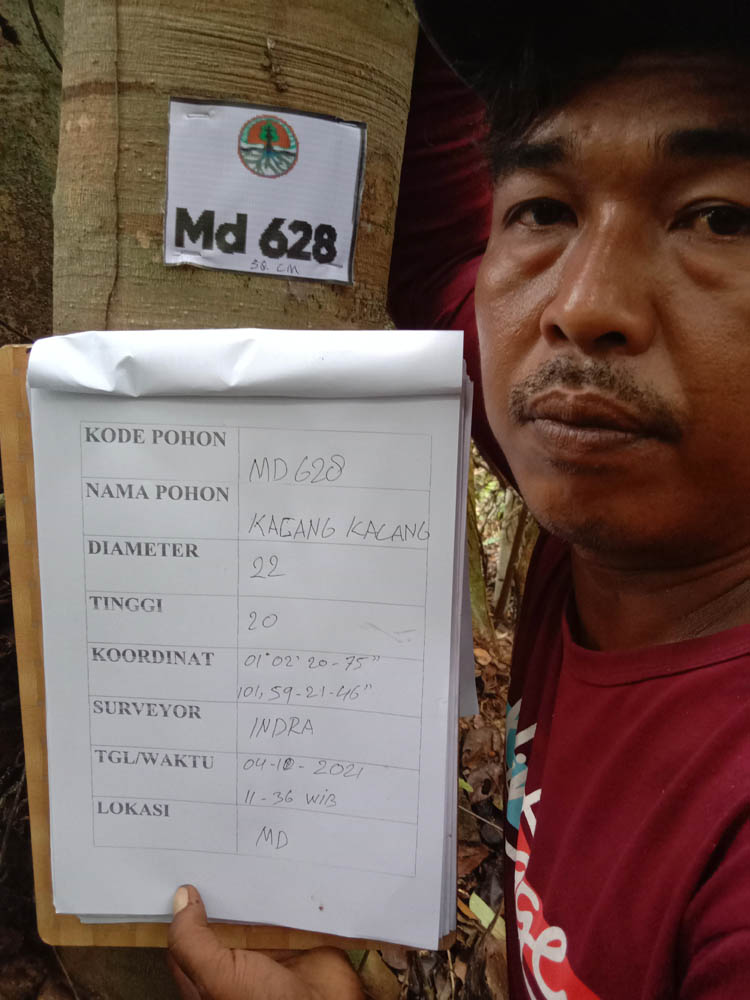 Md 628
KODE POHON MD 628
NAMA POHON KACANG KACANG
DIAMETER 22
TINGGI 20
KOORDINAT 01° 02' 20-75"
101, 59-21-46"
SURVEYOR INDRA
TGL/WAKTU 04-10-2021
11-36 WIB
LOKASI MD